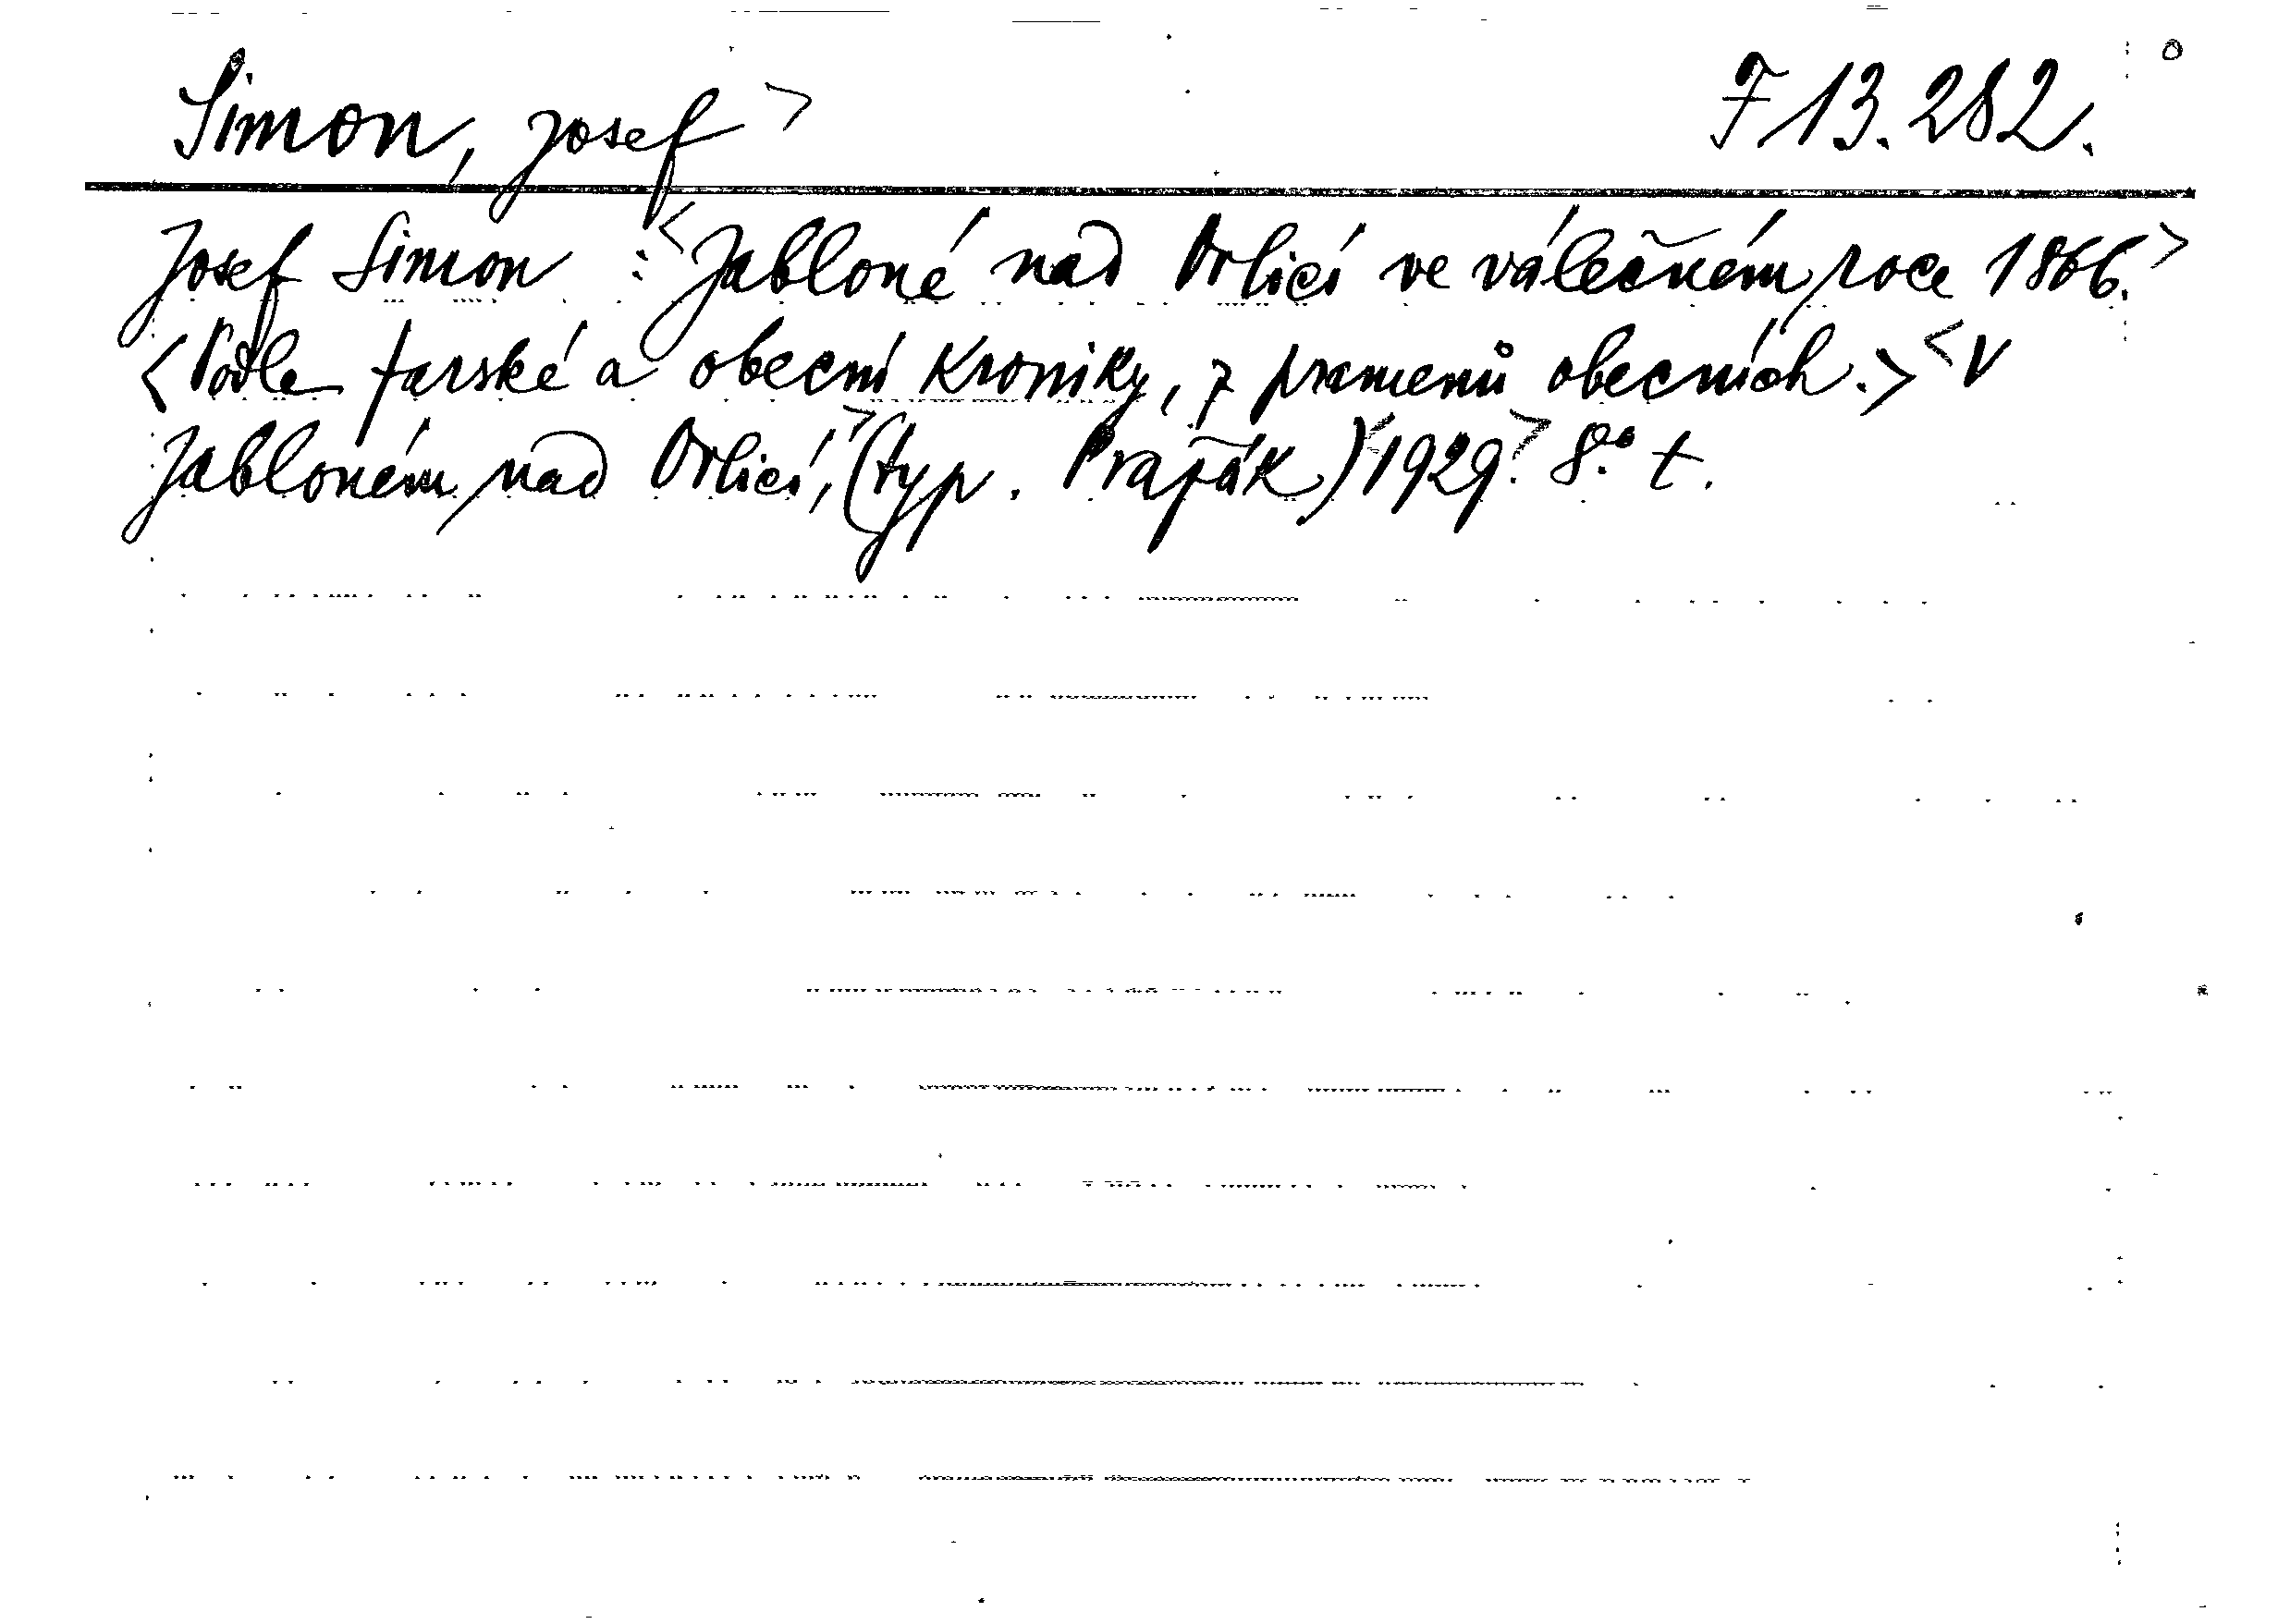 Simon, Josef > F 13.282.
Josef Simon : <Jabloné nad Orlicí ve válečném roce 1866.>
<Podle farské a obecní kroniky, z pramenů obecních.> <V
Jabloném nad Orlicí,> (typ. Pražák) <1929.> 8.° t.